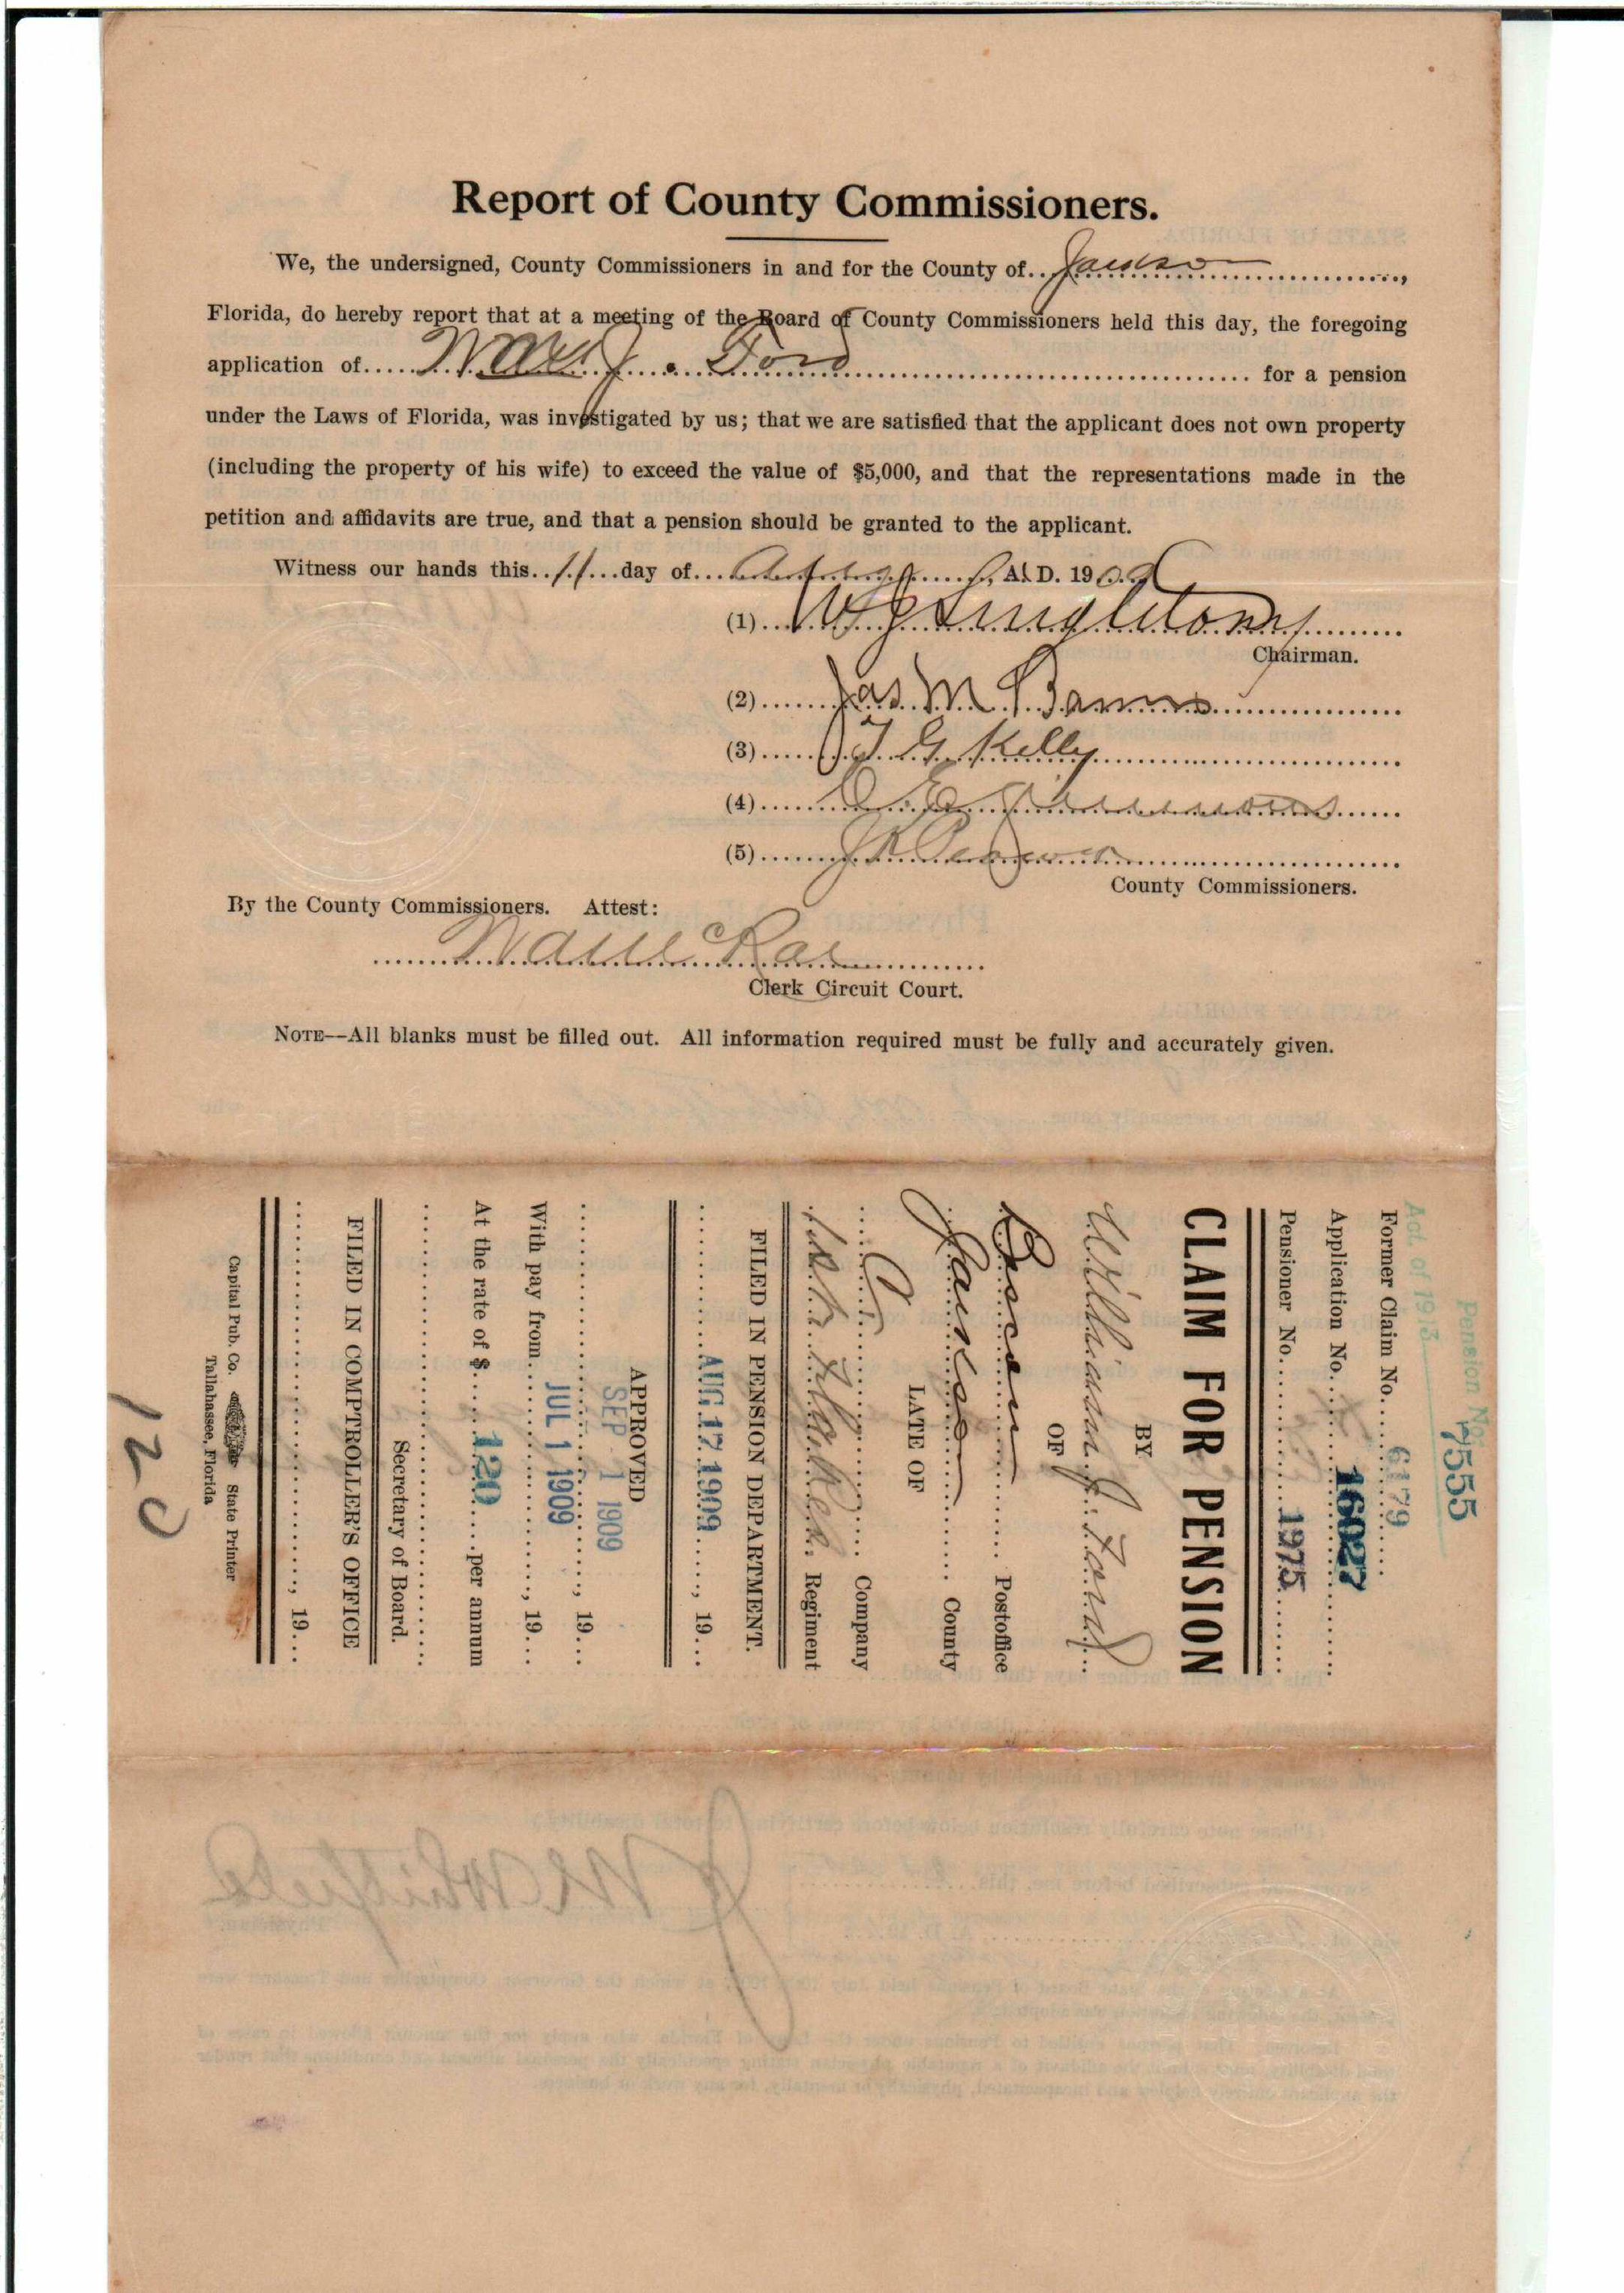 Report of County Commissioners.
We, the undersigned, County Commissioners in and for the County of Jackson,
Florida, do hereby report that at a meeting of the Board of County Commissioners held this day, the foregoing
application of J. Ford for a pension
under the Laws of Florida, was investigated by us; that we are satisfied that the applicant does not own property
(including the property of his wife) to exceed the value of $5,000, and that the representations made in the
petition and affidavits are true, and that a pension should be granted to the applicant.
Witness our hands this 11 day of A. D. 1909
(1) W J Singletary
Chairman.
(2) Jas M Barnes
(3) T G Kelly
(4)
(5)
County Commissioners.
By the County Commissioners. Attest:
Clerk Circuit Court.
NOTE--All blanks must be filled out. All information required must be fully and accurately given.
Pension No. 7555
Act of 1913
Former Claim No. 6179
Application No. 16027
Pensioner No. 1975
CLAIM FOR PENSION
BY
William J. Ford
OF
Bascom Postoffice
Jackson County
LATE OF
G Company
Regiment
FILED IN PENSION DEPARTMENT.
AUG 17 1909, 19
APPROVED
SEP 1 1909, 19
With pay from JUL 1 1909, 19
At the rate of $ 120 per annum
Secretary of Board.
FILED IN COMPTROLLER'S OFFICE
, 19
Capital Pub. Co. State Printer
Tallahassee, Florida
120